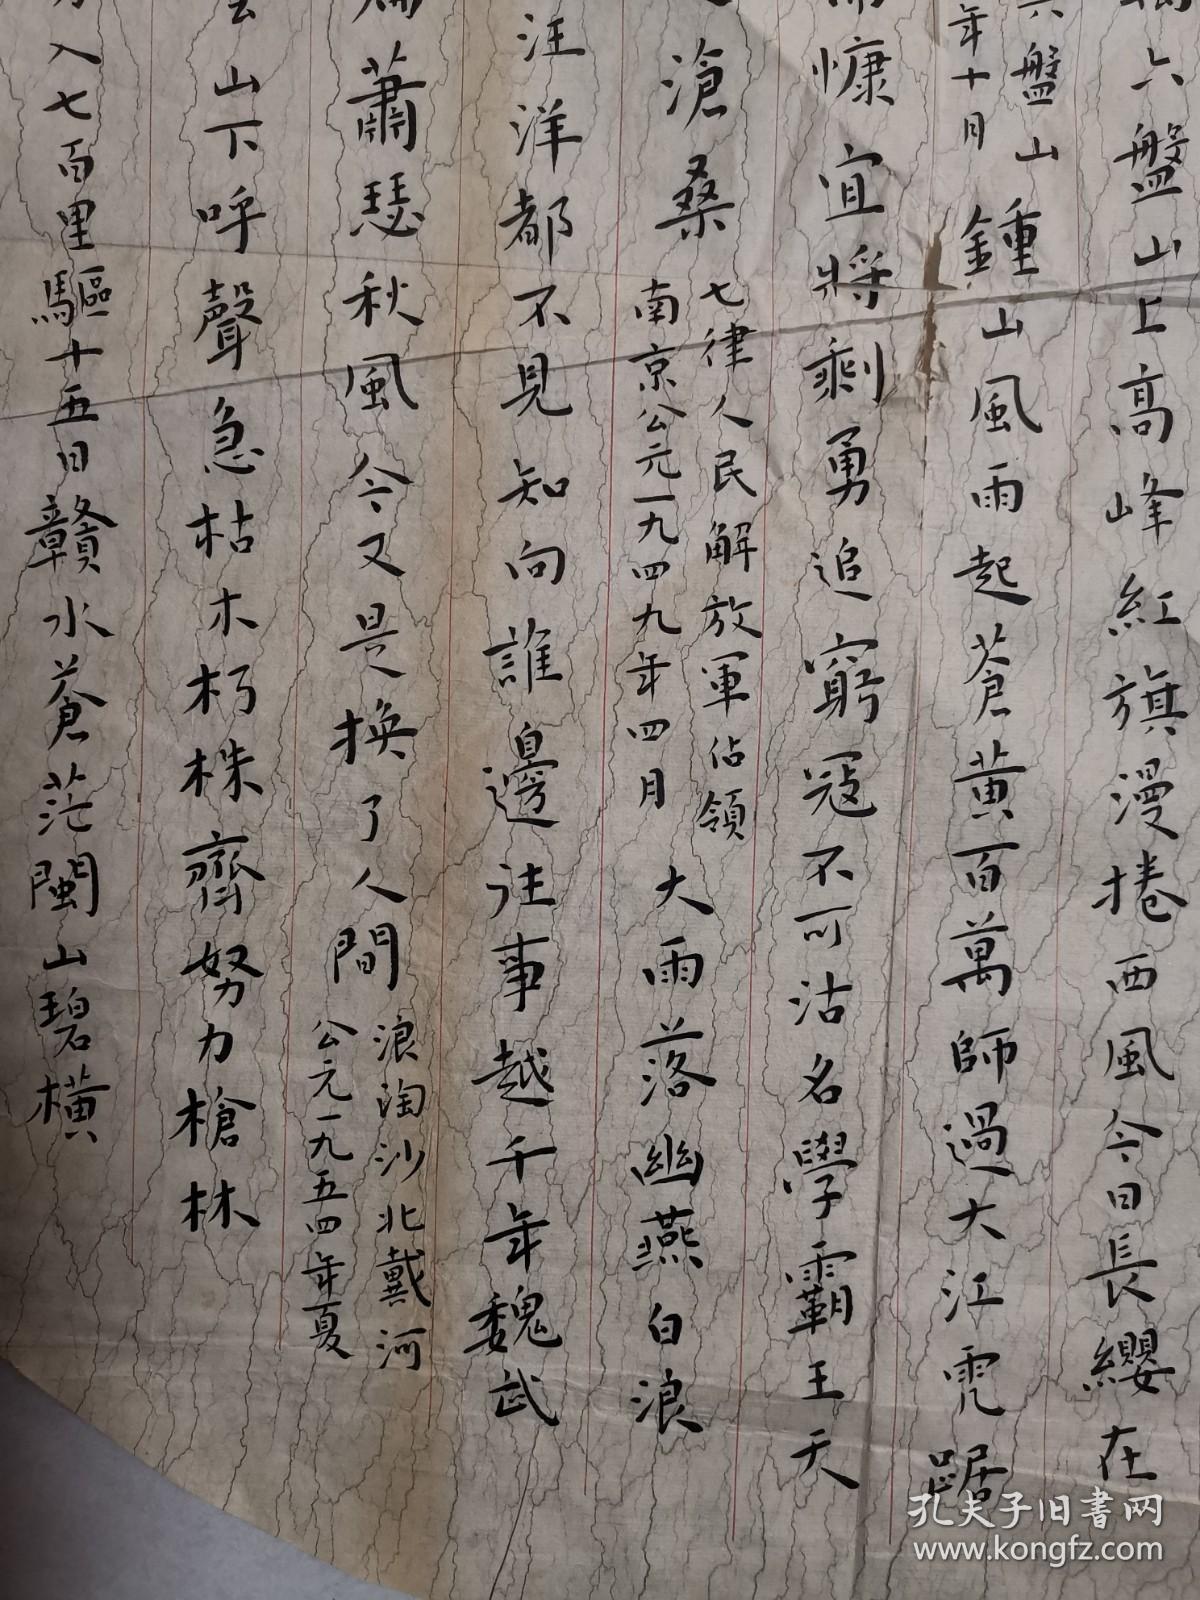 六盤山上高峰紅旗漫捲西風今日長纓在
六盤山
年十月
鍾山風雨起蒼黄百萬師過大江虎踞
慷宜將剩勇追窮寇不可沽名學霸王天
滄桑
七律人民解放軍佔領
南京公元一九四九年四月
大雨落幽燕白浪
汪洋都不見知向誰邊往事越千年魏武
蕭瑟秋風今又是换了人間
浪淘沙北戴河
公元一九五四年夏
山下呼聲急枯木朽株齊努力槍林
入七百里驅十五日贛水蒼茫閩山碧橫
孔夫子旧書网
www.kongfz.com